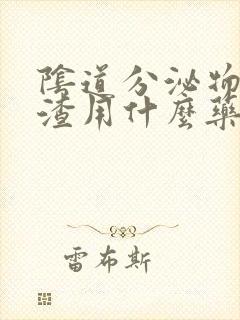 陰道分泌物
渣用什麼藥
雷布斯